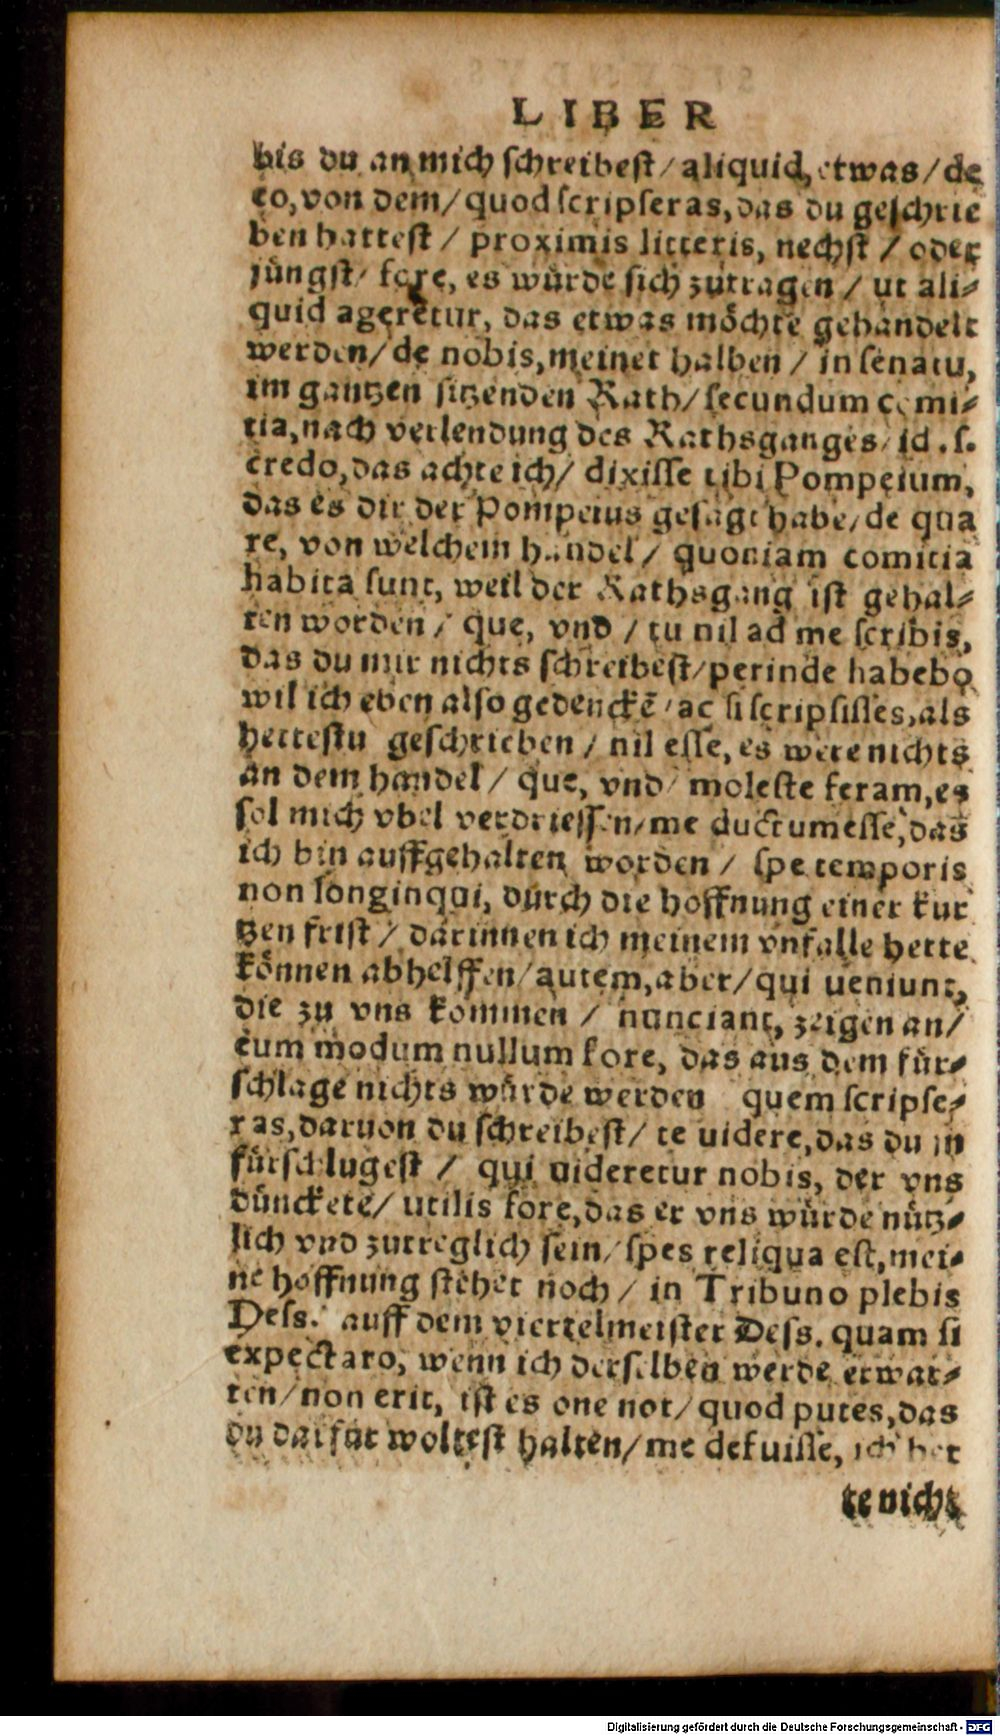 LIBER
bis du an mich schreibest / aliquid, etwas / de
eo, von dem / quod scripseras, das du geschrie
ben hattest / proximis litteris, nechst / oder
jüngst / fore, es würde sich zutragen / ut ali-
quid ageretur, das etwas möchte gehandelt
werden / de nobis, meinet halben / in senatu,
im gantzen sitzenden Rath / secundum comi-
tia, nach verlendung des Rathsganges / id . s.
credo, das achte ich / dixisse tibi Pompeium,
das es dir der Pompeius gesagt habe / de qua
re, von welchem handel / quoniam comitia
habita sunt, weil der Rathsgang ist gehal-
ten worden / que, vnd / tu nil ad me scribis,
das du mir nichts schreibest / perinde habebo
wil ich eben also gedenckē / ac si scripsisses, als
hettestu geschrieben / nil esse, es were nichts
an dem handel / que, vnd / moleste feram, es
sol mich vbel verdriessen / me ductum esse, das
ich bin auffgehalten worden / spe temporis
non longinqui, durch die hoffnung einer kur
tzen frist / darinnen ich meinem vnfalle hette
können abhelffen / autem, aber / qui ueniunt,
die zu vns kommen / nunciant, zeigen an /
eum modum nullum fore, das aus dem für-
schlage nichts würde werden quem scripse-
ras, daruon du schreibest / te uidere, das du jn
fürschlugest / qui uideretur nobis, der vns
dünckete / utilis fore, das er vns würde nütz-
lich vnd zutreglich sein / spes reliqua est, mei-
ne hoffnung stehet noch / in Tribuno plebis
Dess. auff dem viertelmeister Dess. quam si
expectaro, wenn ich derselben werde erwar-
ten / non erit, ist es one not / quod putes, das
du darfür woltest halten / me defuisse, ich het
te nicht
Digitalisierung gefördert durch die Deutsche Forschungsgemeinschaft - DFG